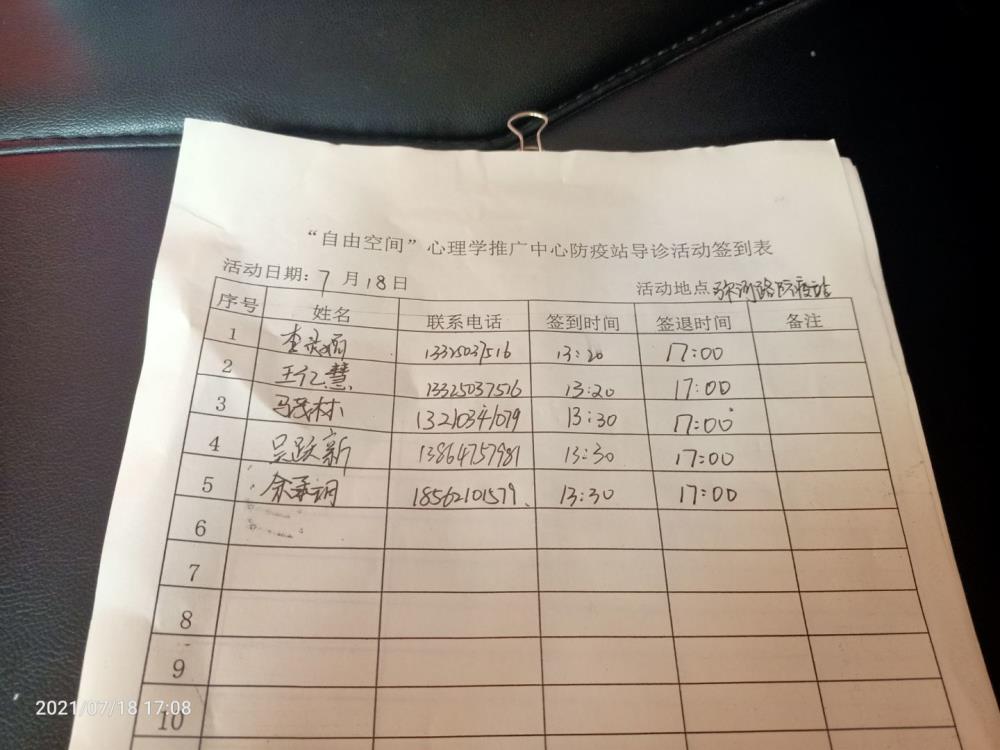 “自由空间”心理学推广中心防疫站导诊活动签到表
活动日期: 7 月 18 日 活动地点 防疫站
序号 姓名 联系电话 签到时间 签退时间 备注
1 13325037516 13:20 17:00
2 王仁慧 13325037516 13:20 17:00
3 马茂林 13210341079 13:30 17:00
4 吴跃新 13864757981 13:30 17:00
5 18562101579 13:30 17:00
6
7
8
9
10
2021/07/18 17:08